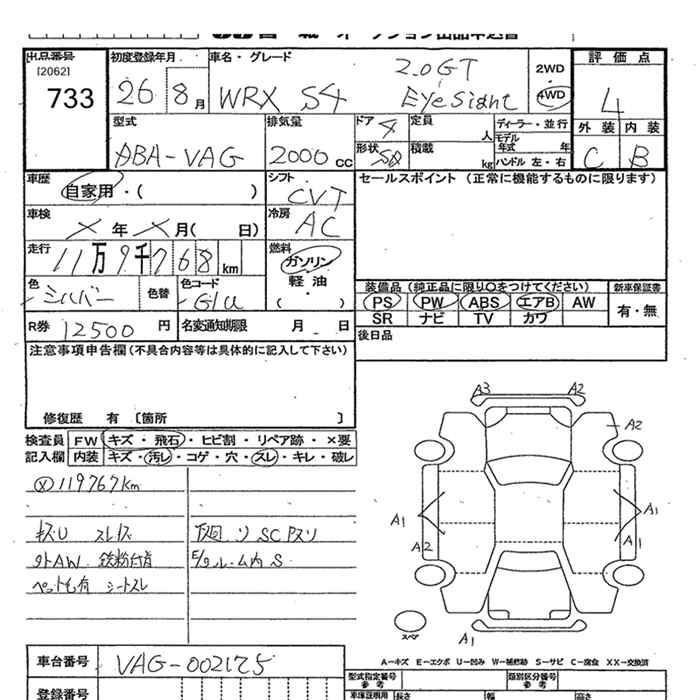 出品番号
[2062]
733
初度登録年月
26 8 月
車名・グレード
WRX S4
2.0GT
EyeSight
2WD
4WD
評価点
4
外装 内装
C B
型式
DBA-VAG
排気量
2000 cc
ドア 4
形状 SD
定員
人
積載
kg
ディーラー・並行
モデル
年式 年
ハンドル 左・右
車歴
自家用・( )
シフト
CVT
セールスポイント (正常に機能するものに限ります)
車検
X 年 X 月( 日)
冷房
AC
走行
11万9千768km
燃料
ガソリン
軽油
( )
色
シルバー
色替
色コード
G1U
装備品 (純正品に限り○をつけてください)
新車保証書
PS PW ABS エアB AW
SR ナビ TV カワ
有・無
R券 12500 円
名変通知期限 月 日
後日品
注意事項申告欄(不具合内容等は具体的に記入して下さい)
修復歴 有 [箇所 ]
検査員
記入欄
FW キズ・飛石・ヒビ割・リペア跡・×要
内装 キズ・汚レ・コゲ・穴・スレ・キレ・破レ
119767km
キズU スレキズ
外AW 鉄粉付着
ペット毛有 シートスレ
下廻リ SC Pスリ
E/gルーム内S
A3 A2
A2
A1
A2
A1
A1
スペア
A1
A-キズ E-エクボ U-凹み W-補修跡 S-サビ C-腐食 XX-交換済
車台番号
VAG-002175
型式指定番号
参考
類別区分番号
参考
登録番号
車庫証明用
長さ
幅
高さ